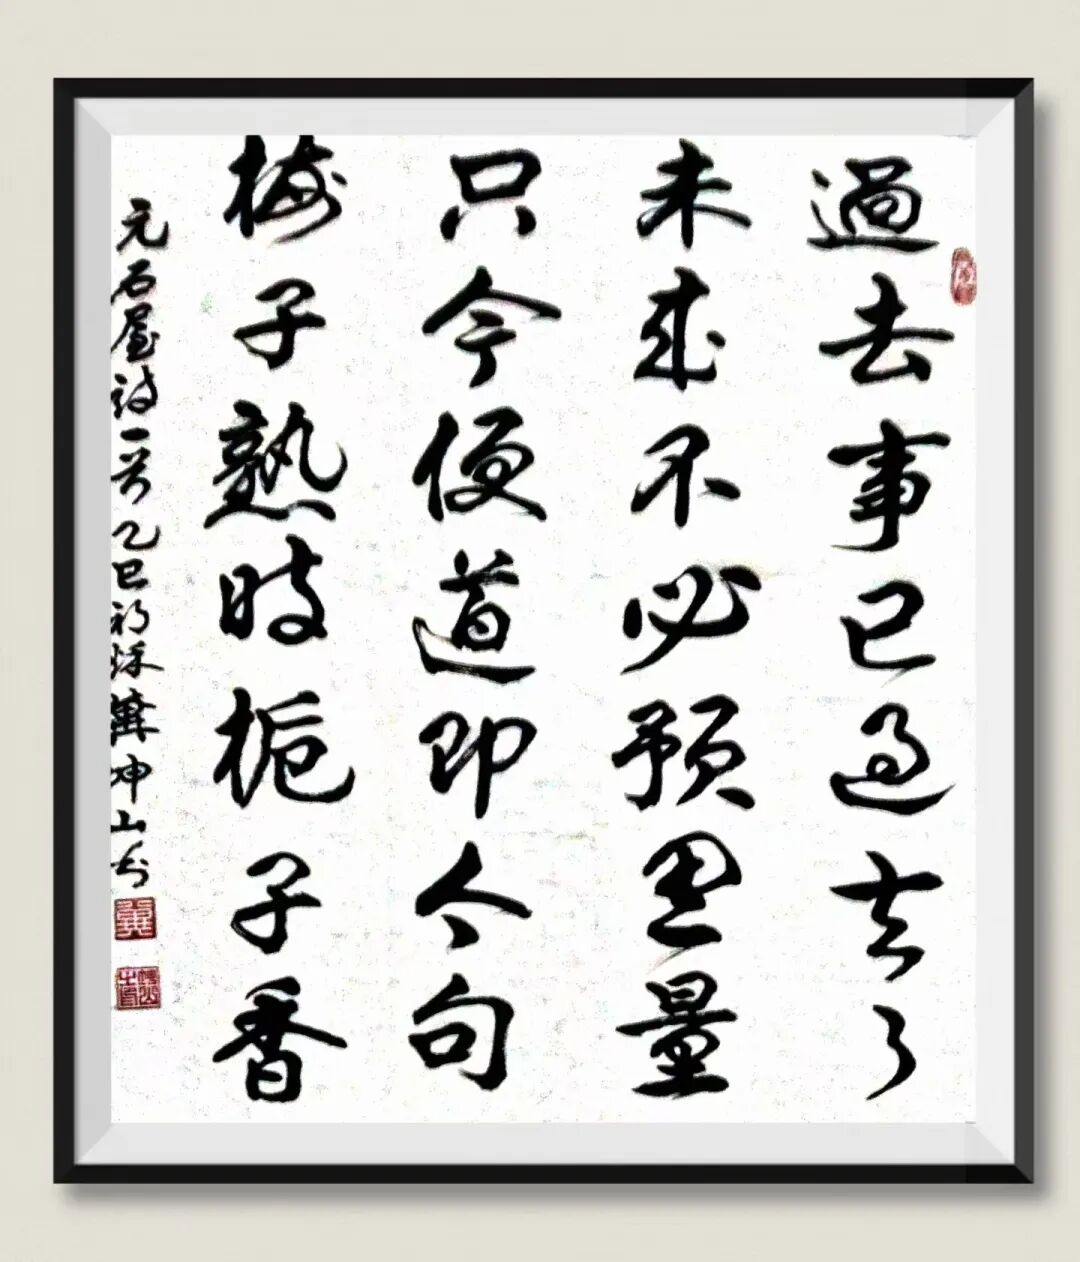 過去事已過去了
未來不必預思量
只今便道即今句
梅子熟時梔子香
元石屋詩一首乙巳初秋坤山書